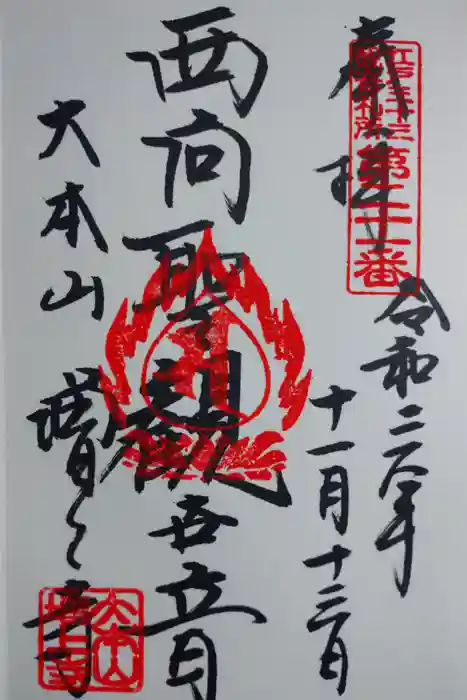 奉拝
江戸三十三
観音札所
第二十一番
令和二年
十一月十三日
西向聖観世音
大本山
増上寺
大本山
増上寺